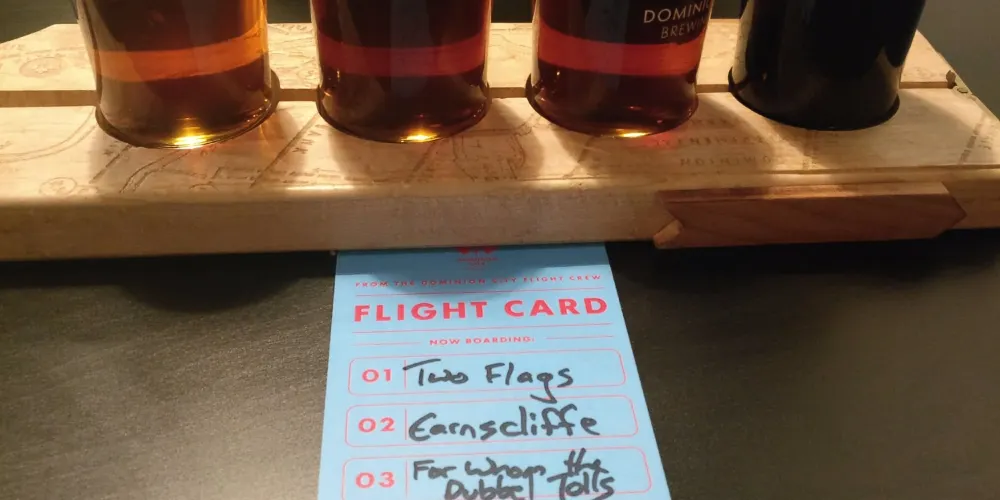 DOMINI
BREWI
FROM THE DOMINION CITY FLIGHT CREW
FLIGHT CARD
NOW BOARDING:
01 Two Flags
02 Earnscliffe
03 For Whom the
Dubbel Tolls